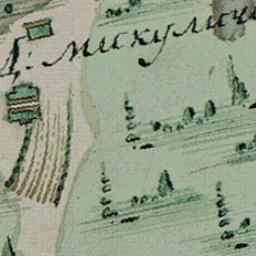 Д: мискуличи